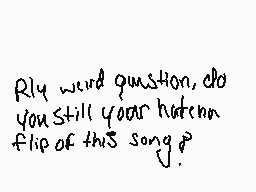 Rly weird qunstion, do
you still your hatena
flip of this song?